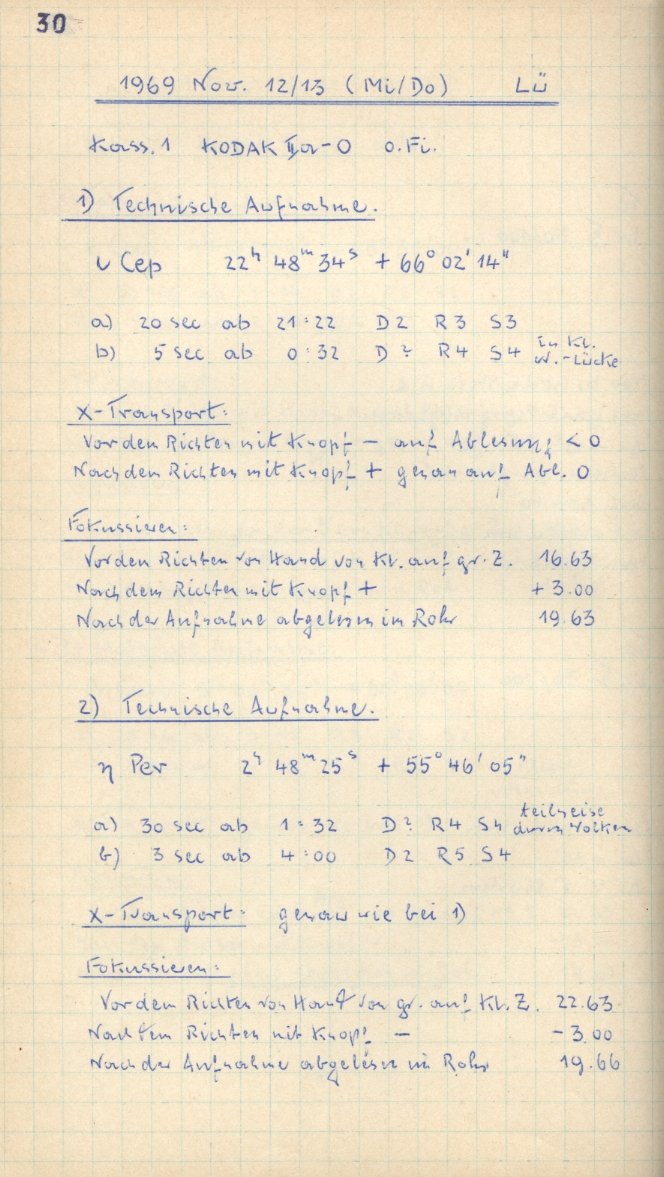 30
1969 Nov. 12/13 (Mi/Do) Lü
Kass. 1 KODAK IIa-O o.Fi.
1) Technische Aufnahme.
ι Cep 22h 48m 34s + 66° 02' 14"
a) 20 sec ab 21:22 D2 R3 S3
b) 5 sec ab 0:32 D? R4 S4 in kl. W.-Lücke
X-Transport:
Vor dem Richten mit Knopf – auf Ablesung < 0
Nach dem Richten mit Knopf + genau auf Abl. 0
Fokussieren:
Vor dem Richten von Hand von kl. auf gr. Z. 16.63
Nach dem Richten mit Knopf + + 3.00
Nach der Aufnahme abgelesen im Rohr 19.63
2) Technische Aufnahme.
η Per 2h 48m 25s + 55° 46' 05"
a) 30 sec ab 1:32 D? R4 S4 teilweise durch Wolken
b) 3 sec ab 4:00 D2 R5 S4
X-Transport: genau wie bei 1)
Fokussieren:
Vor dem Richten von Hand von gr. auf kl. Z. 22.63
Nach dem Richten mit Knopf – – 3.00
Nach der Aufnahme abgelesen im Rohr 19.66